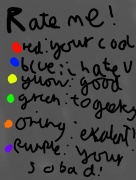 Rate me!
red: your cool
blue: i hate U
yullow: good
green: to geeky
oring: exalent!
purple: your
so bad!